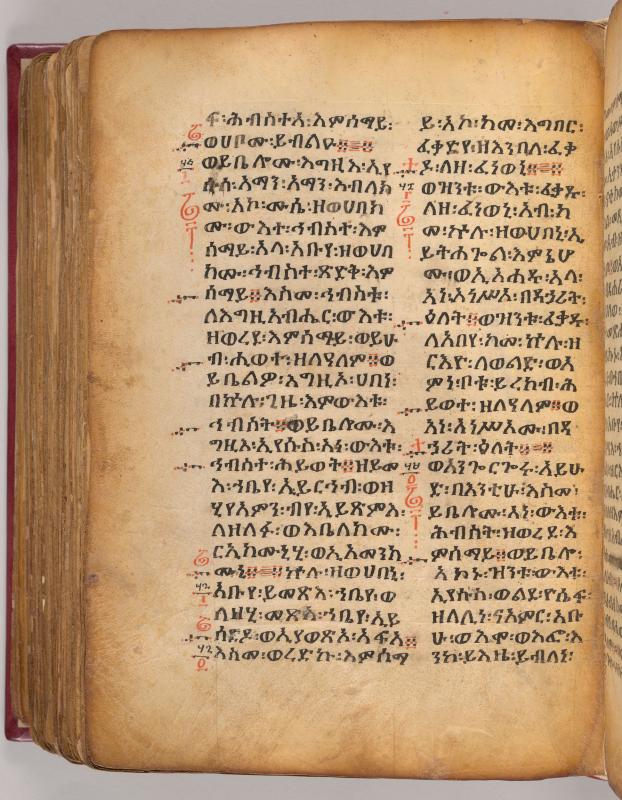 ፍ፡ሕብስተ፡እምሰማይ፡
ወሀቦሙ፡ይብልዑ።
ወይቤሎሙ፡እግዚእ፡ኢየ
ሱስ፡አማን፡አማን፡እብለክ
ሙ፡አኮ፡ሙሴ፡ዘወሀበክ
ሙ፡ውእተ፡ኅብስተ፡እም
ሰማይ፡አላ፡አቡየ፡ዘወሀበ
ክሙ፡ኅብስተ፡ጽድቅ፡እም
ሰማይ።እስመ፡ኅብስቱ፡
ለእግዚአብሔር፡ውእቱ፡
ዘወረደ፡እምሰማይ፡ወይሁ
ብ፡ሒወተ፡ዘለዓለም።ወ
ይቤልዎ፡እግዚኦ፡ሀበነ፡
በኵሉ፡ጊዜ፡እምውእቱ፡
ኅብስት።ወይቤሎሙ፡እ
ግዚእ፡ኢየሱስ፡አነ፡ውእቱ፡
ኅብስተ፡ሕይወት።ዘይመ
እ፡ኀቤየ፡ኢይርኅብ፡ወዘ
ሂየአምን፡ብየ፡ኢይጸምእ፡
ለዘለፉ፡ወእቤለክሙ፡
ርኢክሙኒሂ፡ወኢአመንክ
ሙኒ።ኵሉ፡ዘወሀበኒ፡
አቡየ፡ይመጽእ፡ኀቤየ፡ወ
ለዘሂ፡መጽአ፡ኀቤየ፡ኢይ
ሰድዶ፡ወኢያወጽኦ፡አፍአ።
እስመ፡ወረድኩ፡እምሰማ
ይ፡አኮ፡ከመ፡እግበር፡
ፈቃድየ፡ዘእንበለ፡ፈቃ
ዶ፡ለዘ፡ፈነወኒ።
ወዝንቱ፡ውእቱ፡ፈቃዱ፡
ለዘ፡ፈነወኒ፡አብ፡ከ
መ፡ኵሉ፡ዘወሀበኒ፡ኢ
ይትሐጐል፡እምኔሆ
ሙ፡ወኢአሐዱ፡አላ፡
አነ፡አነሥኦ፡በደኃሪት፡
ዕለት።ወዝንቱ፡ፈቃዱ፡
ለአበየ፡ከመ፡ኵሉ፡ዘ
ርእዮ፡ለወልድ፡ወአ
ምነ፡ቦቱ፡ይረከብ፡ሕ
ይወተ፡ዘለዓለም።ወ
አነ፡አነሥኦሙ፡በደ
ኃሪት፡ዕለት።
ወአንጐርጐሩ፡አይሁ
ድ፡በእንቲሁ፡እስመ፡
ይቤሎሙ፡አነ፡ውእቱ፡
ሕብስት፡ዘወረደ፡እ
ምሰማይ።ወይቤሎ፡
አኮኑ፡ዝንቱ፡ውእቱ፡
ኢየሱስ፡ወልደ፡ዮሴፍ፡
ዘለሊነ፡ናአምር፡አቡ
ሁ፡ወእሞ፡ወእፎ፡እ
ንከ፡ይእዜ፡ይብለነ፡